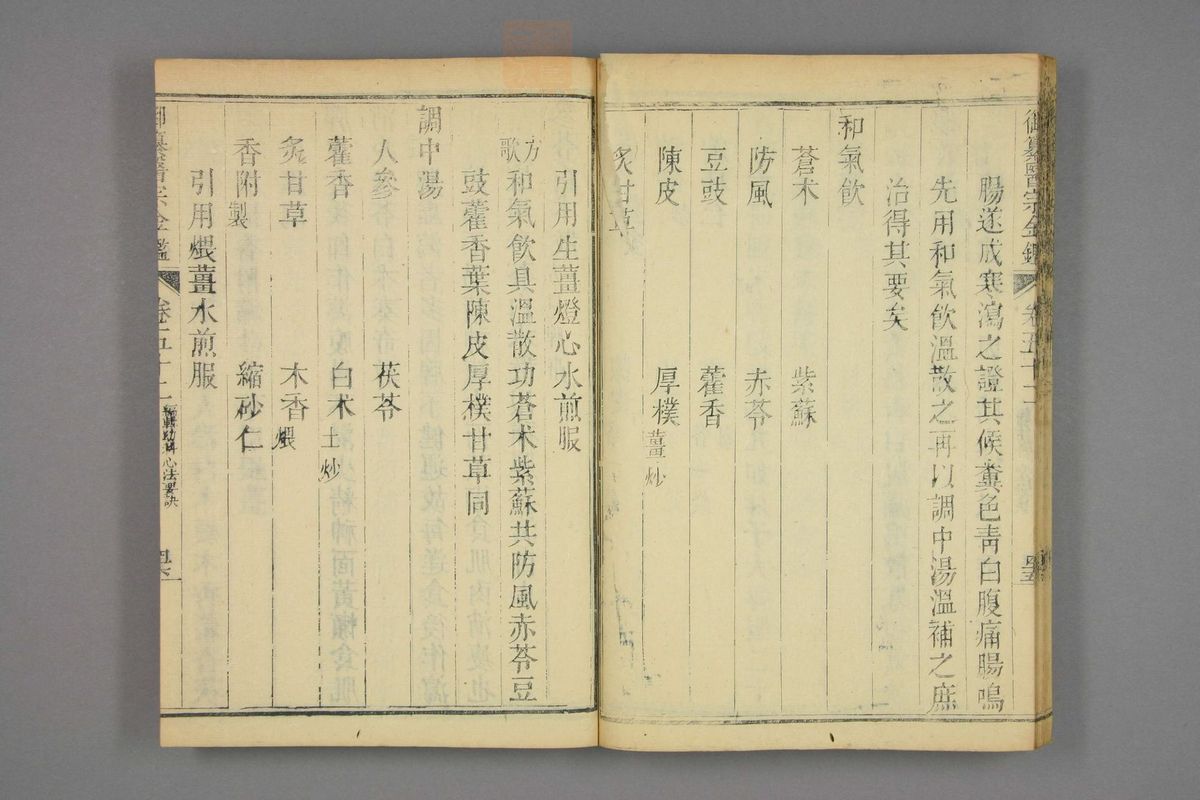 腸遂成寒瀉之證其候糞色青白腹痛腸鳴
先用和氣飲溫散之再以調中湯溫補之庶
治得其要矣
和氣飲
蒼术 紫蘇
防風 赤苓
豆豉 藿香
陳皮 厚樸薑炒
炙甘草
引用生薑燈心水煎服
方歌 和氣飲具溫散功蒼术紫蘇共防風赤苓豆
豉藿香葉陳皮厚樸甘草同
調中湯
人參 茯苓
藿香 白术土炒
炙甘草 木香煨
香附製 縮砂仁
引用煨薑水煎服
御纂醫宗金鑑 卷五十二 編輯幼科心法要訣